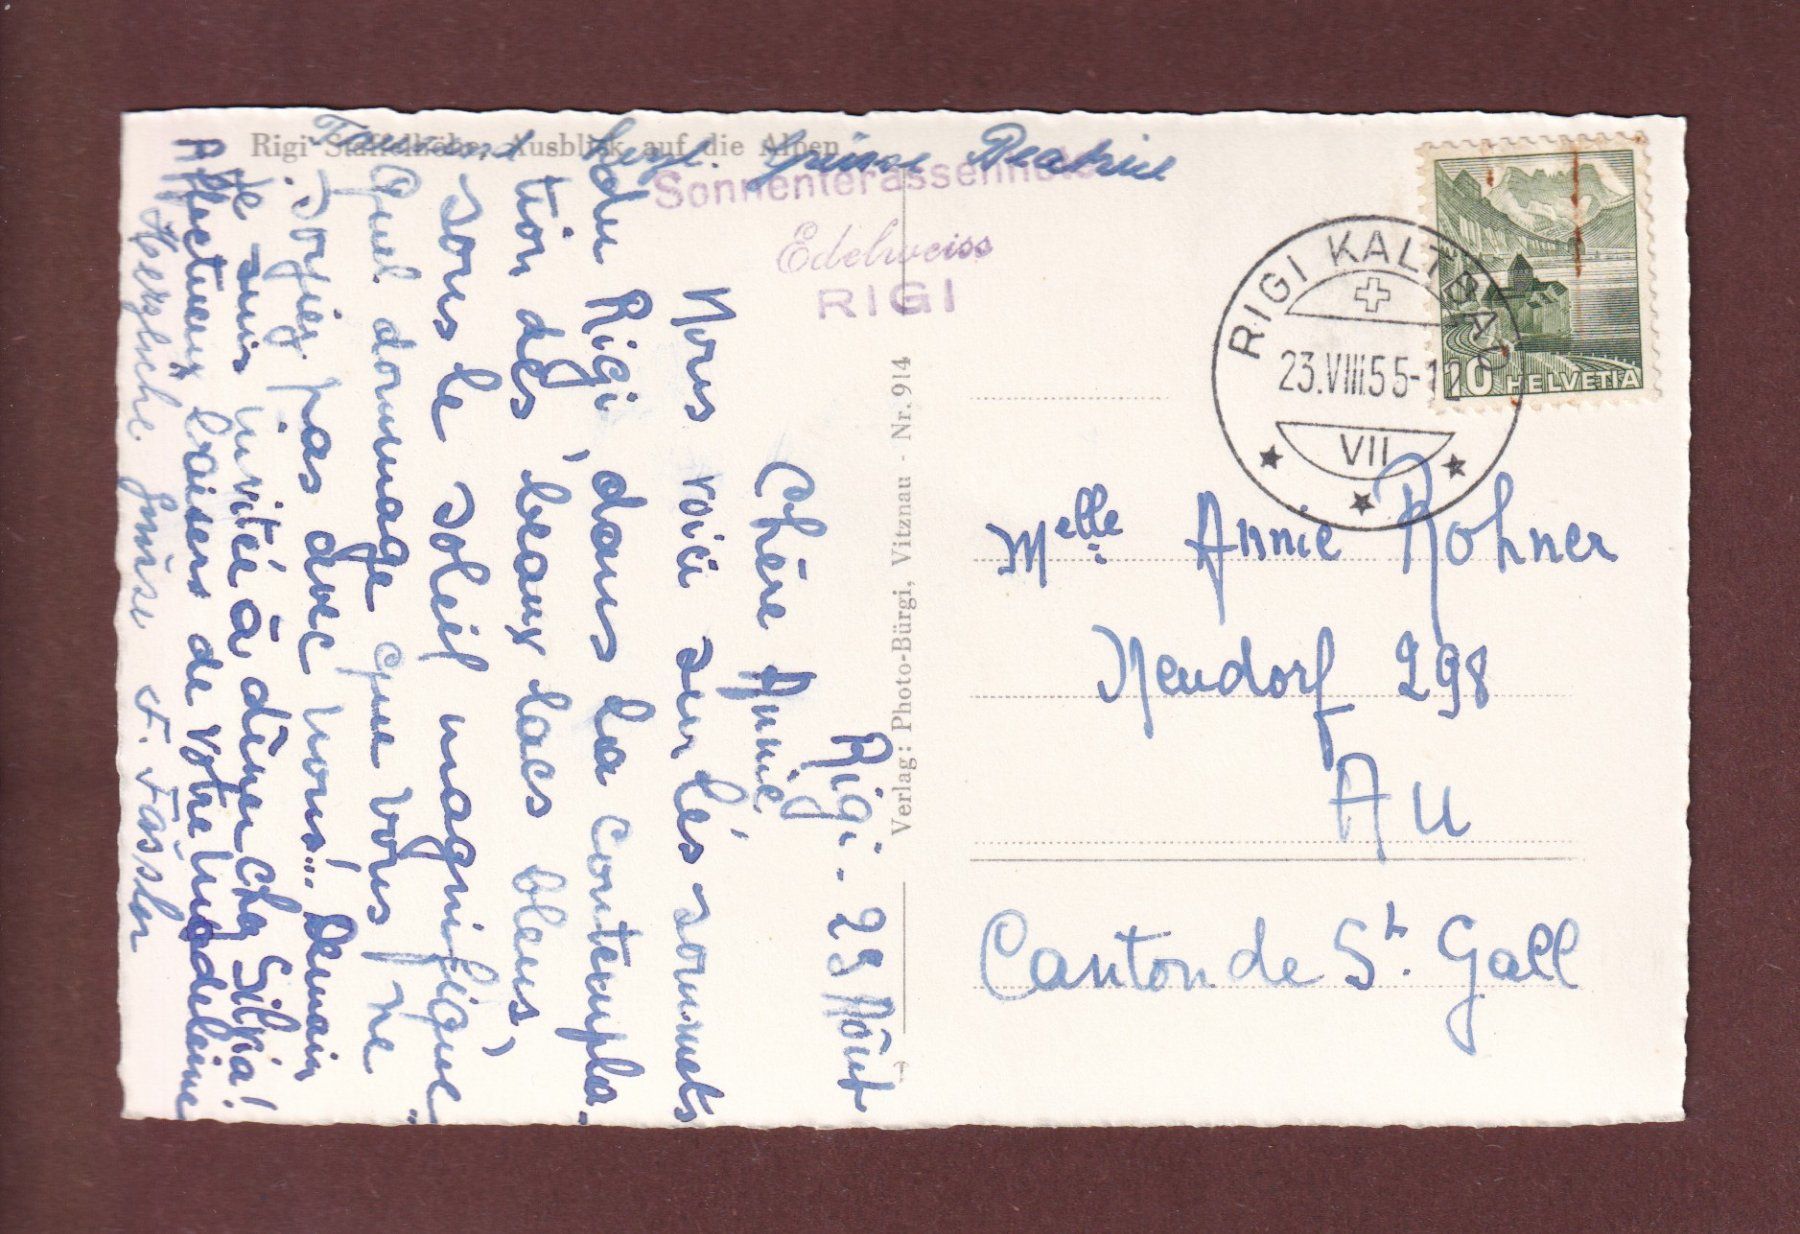 Rigi Staffelhöhe, Ausblick auf die Alpen
Tausend herzl. Grüsse Beatrice
Sonnenterassenhotel
Edelweiss
RIGI
RIGI KALTBAD
23.VIII.55-12
VII
10 HELVETIA
Verlag: Photo-Bürgi, Vitznau - Nr. 914
Rigi - 23 Août
Chère Annie
Nous voici sur les sommets
du Rigi, dans la contempla-
tion des beaux lacs bleus,
sous le soleil magnifique..
Quel dommage que vous ne
soyiez pas avec nous!.. Demain
je suis invitée à dîner chez Silvia!
Affectueux baisers de votre Madeleine
Herzliche Grüsse F. Fässler
Melle Annie Rohner
Neudorf 298
AU
Canton de St. Gall